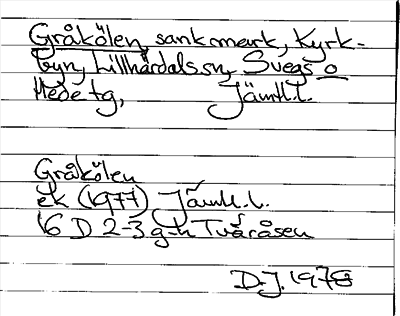 Gråkölen, sankmark, Kyrk-
byn, Lillhärdals sn, Svegs o
Hede tg, Jämtl.l.
Gråkölen
ek (1977) Jämtl.l.
16 D 2-3 g-h Tvåråsen
D.J. 1978